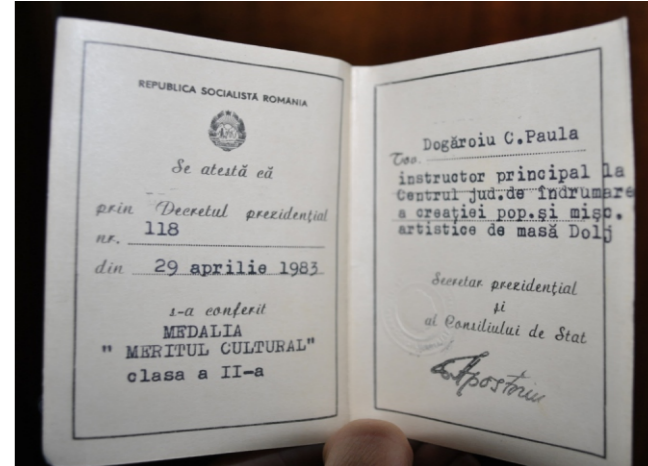 REPUBLICA SOCIALISTĂ ROMÂNIA
Se atestă că
prin Decretul prezidenţial
nr. 118
din 29 aprilie 1983
s-a conferit
MEDALIA
" MERITUL CULTURAL"
clasa a II-a
Tov. Dogăroiu C.Paula
instructor principal la
Centrul jud.de îndrumare
a creaţiei pop.şi mişc.
artistice de masă Dolj
Secretar prezidenţial
şi
al Consiliului de Stat